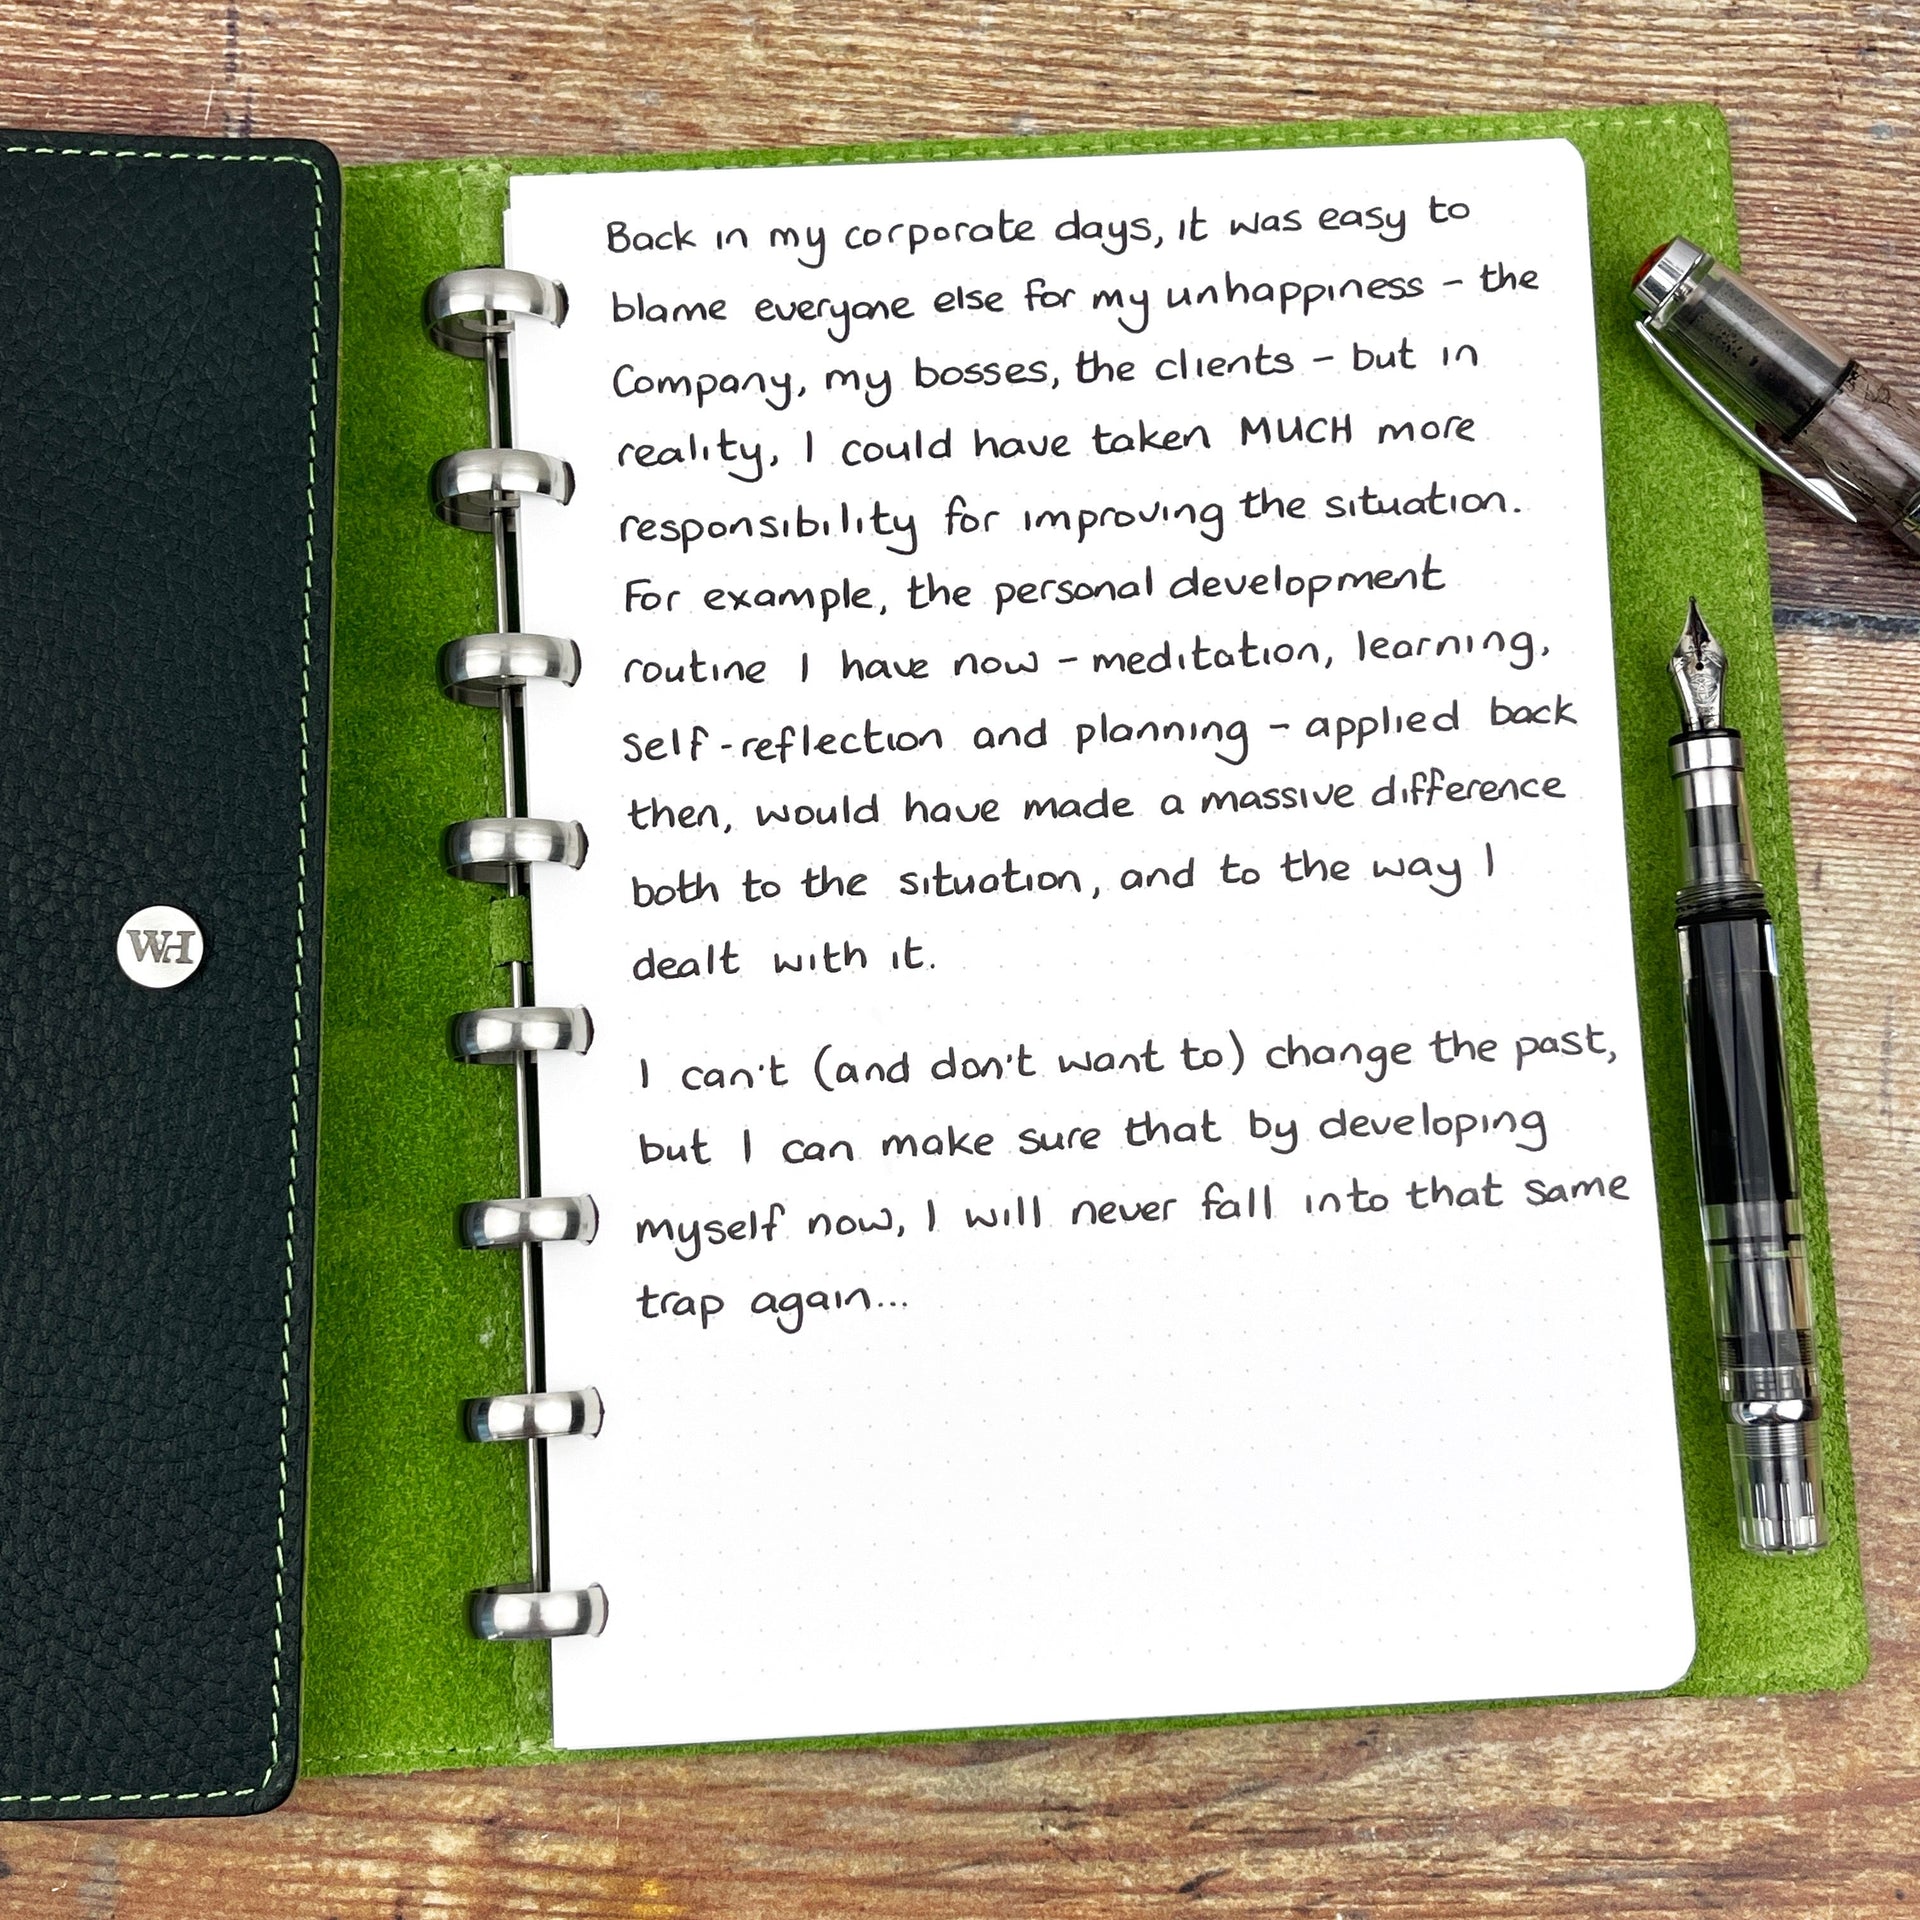 WH
Back in my corporate days, it was easy to
blame everyone else for my unhappiness - the
Company, my bosses, the clients - but in
reality, I could have taken MUCH more
responsibility for improving the situation.
For example, the personal development
routine I have now - meditation, learning,
self-reflection and planning - applied back
then, would have made a massive difference
both to the situation, and to the way I
dealt with it.
I can't (and don't want to) change the past,
but I can make sure that by developing
myself now, I will never fall into that same
trap again...